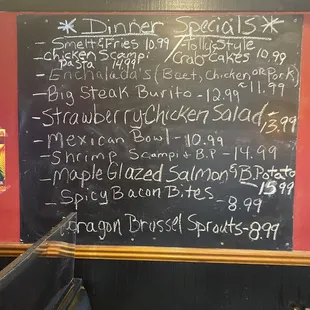 * Dinner Specials *
- Smelt & Fries 10.99 / Tolly's Style
- Chicken Scampi Crab Cakes 10.99
Pasta 14.99
- Enchalada's (Beef, Chicken or Pork)
- 11.99
- Big Steak Burito - 12.99
- Strawberry Chicken Salad -
13.99
- Mexican Bowl - 10.99
- Shrimp Scampi & B.P - 14.99
- Maple Glazed Salmon & B.Potato
- 15.99
- Spicy Bacon Bites
- 8.99
Dragon Brussel Sprouts - 8.99